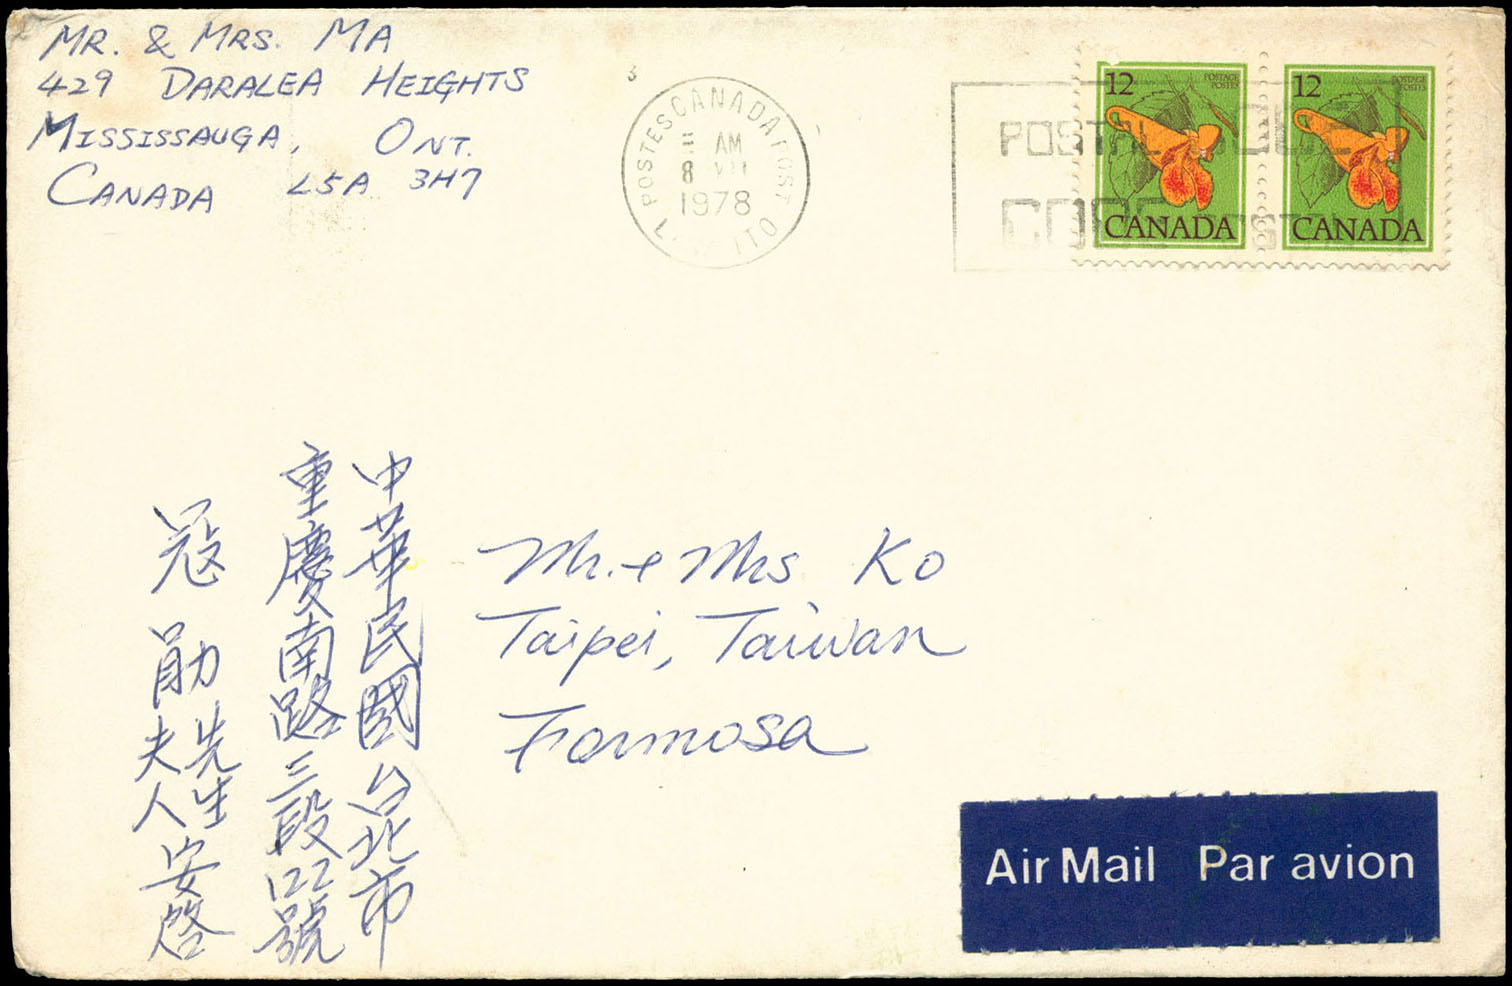 MR. & MRS. MA
429 DARALEA HEIGHTS
MISSISSAUGA, ONT.
CANADA L5A 3H7
POSTES CANADA POST OTTO
AM
8 VII
1978
POSTAL CODE
CODE
12
POSTAGE
POSTES
CANADA
12
POSTAGE
POSTES
CANADA
中華民國台北市
重慶南路三段122號
先生
夫人 安啓
Mr. + Mrs Ko
Taipei, Taiwan
Formosa
Air Mail Par avion